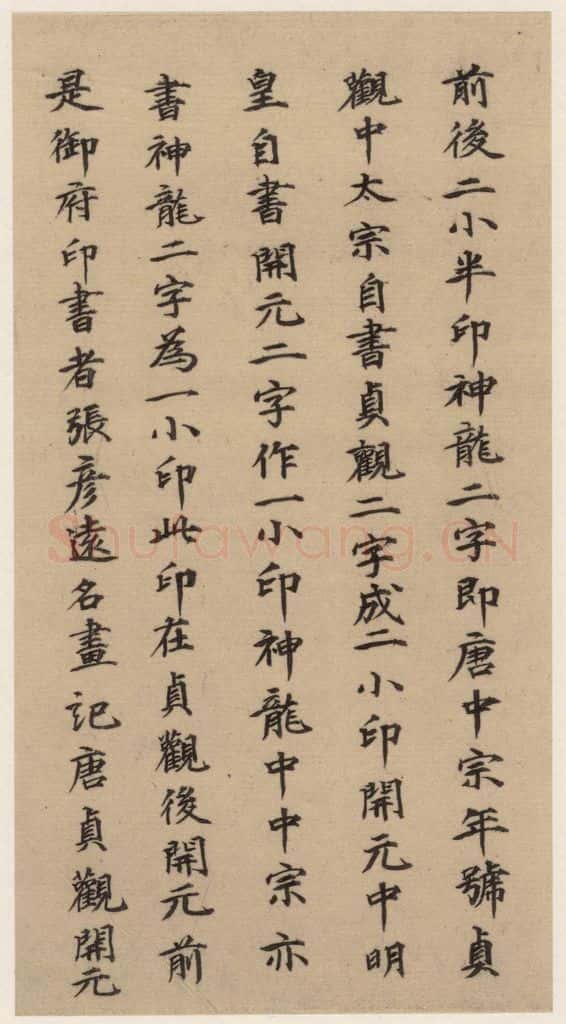 前後二小半印神龍二字即唐中宗年號貞
觀中太宗自書貞觀二字成二小印開元中明
皇自書開元二字作一小印神龍中中宗亦
書神龍二字為一小印此印在貞觀後開元前
是御府印書者張彦遠名畫記唐貞觀開元
Shufawang.CN